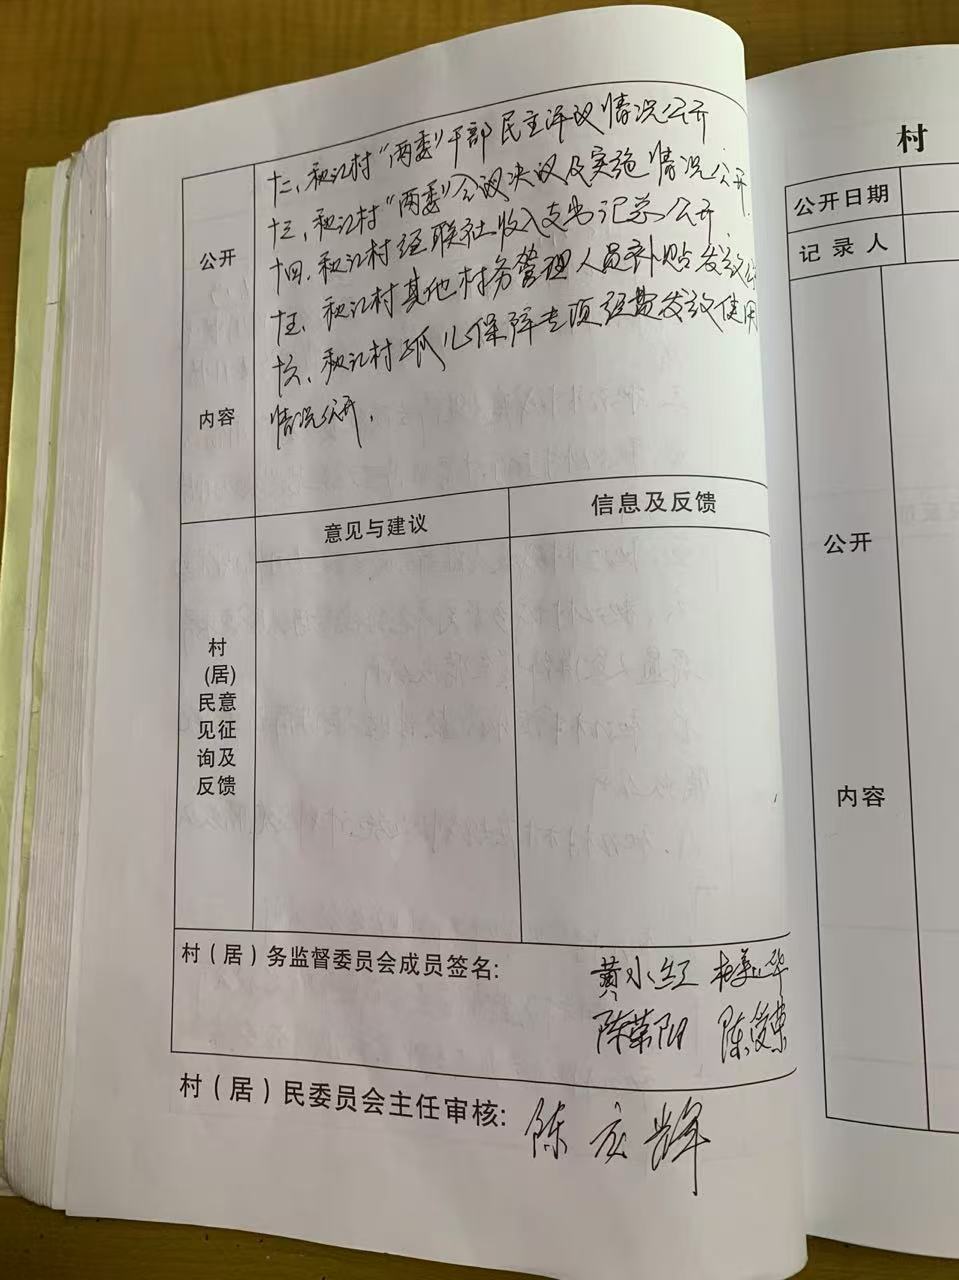 十二、秋江村“两委”干部民主评议情况公开
十三、秋江村“两委”会议决议及实施情况公开.
十四、秋江村经联社收入支出记录公开
十五、秋江村其他村务管理人员补贴发放
十六、秋江村孤儿保障专项经费发放使用
情况公开.
公开
内容
意见与建议
信息及反馈
村
(居)
民意
见征
询及
反馈
村（居）务监督委员会成员签名:
黄小红
陈荣阳 陈俊荣
村（居）民委员会主任审核:
陈
村
公开日期
记录人
公开
内容